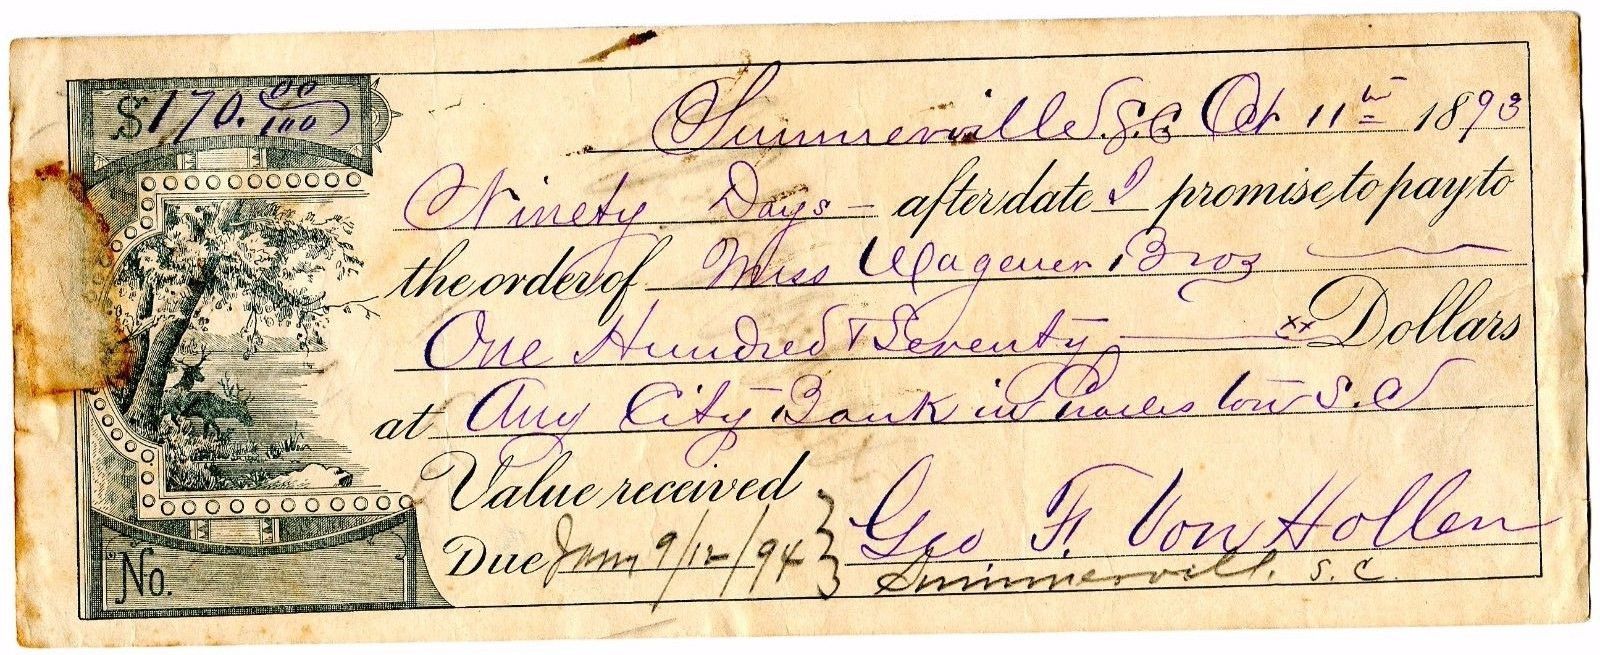 $170.00/100
Summerville S.C. Oct 11th 1893
Ninety Days - after date I promise to pay to
the order of Miss Wagener Bros
One Hundred & Seventy xx Dollars
at Any City Bank in Charleston S.C
Value received
Due Jany 9/12/94 Geo F. Von Hollen
Summervill. S.C.
No.